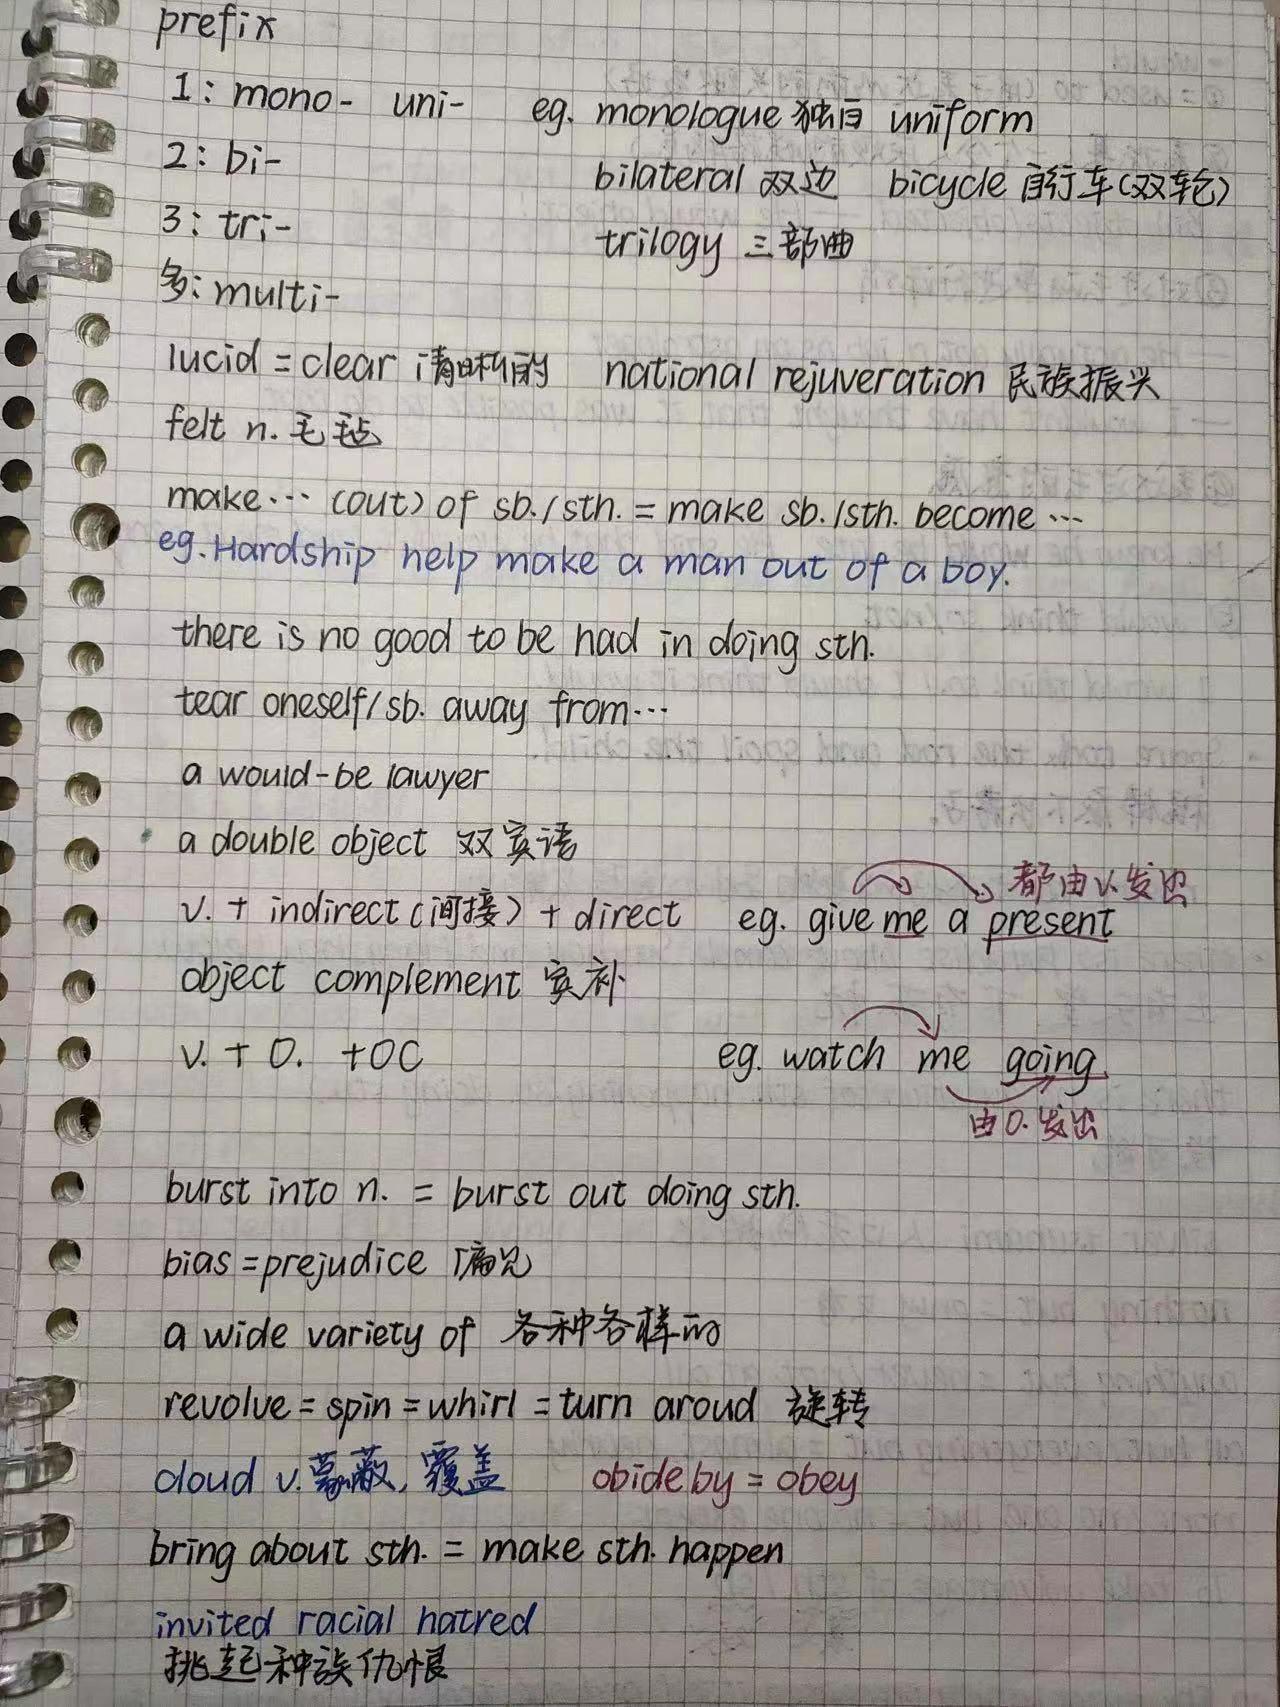 prefix
1: mono- uni- eg. monologue 独白 uniform
2: bi- bilateral 双边 bicycle 自行车(双轮)
3: tri- trilogy 三部曲
多: multi-
lucid = clear 清晰的 national rejuveration 民族振兴
felt n. 毛毡
make… (out) of sb./sth. = make sb./sth. become …
eg. Hardship help make a man out of a boy.
there is no good to be had in doing sth.
tear oneself/sb. away from…
a would-be lawyer
a double object 双宾语
都由v.发出
v. + indirect(间接) + direct eg. give me a present
object complement 宾补
v. + O. + OC eg. watch me going
由O.发出
burst into n. = burst out doing sth.
bias = prejudice 偏见
a wide variety of 各种各样的
revolve = spin = whirl = turn aroud 旋转
cloud v. 蒙蔽, 覆盖 abide by = obey
bring about sth. = make sth. happen
invited racial hatred
挑起种族仇恨